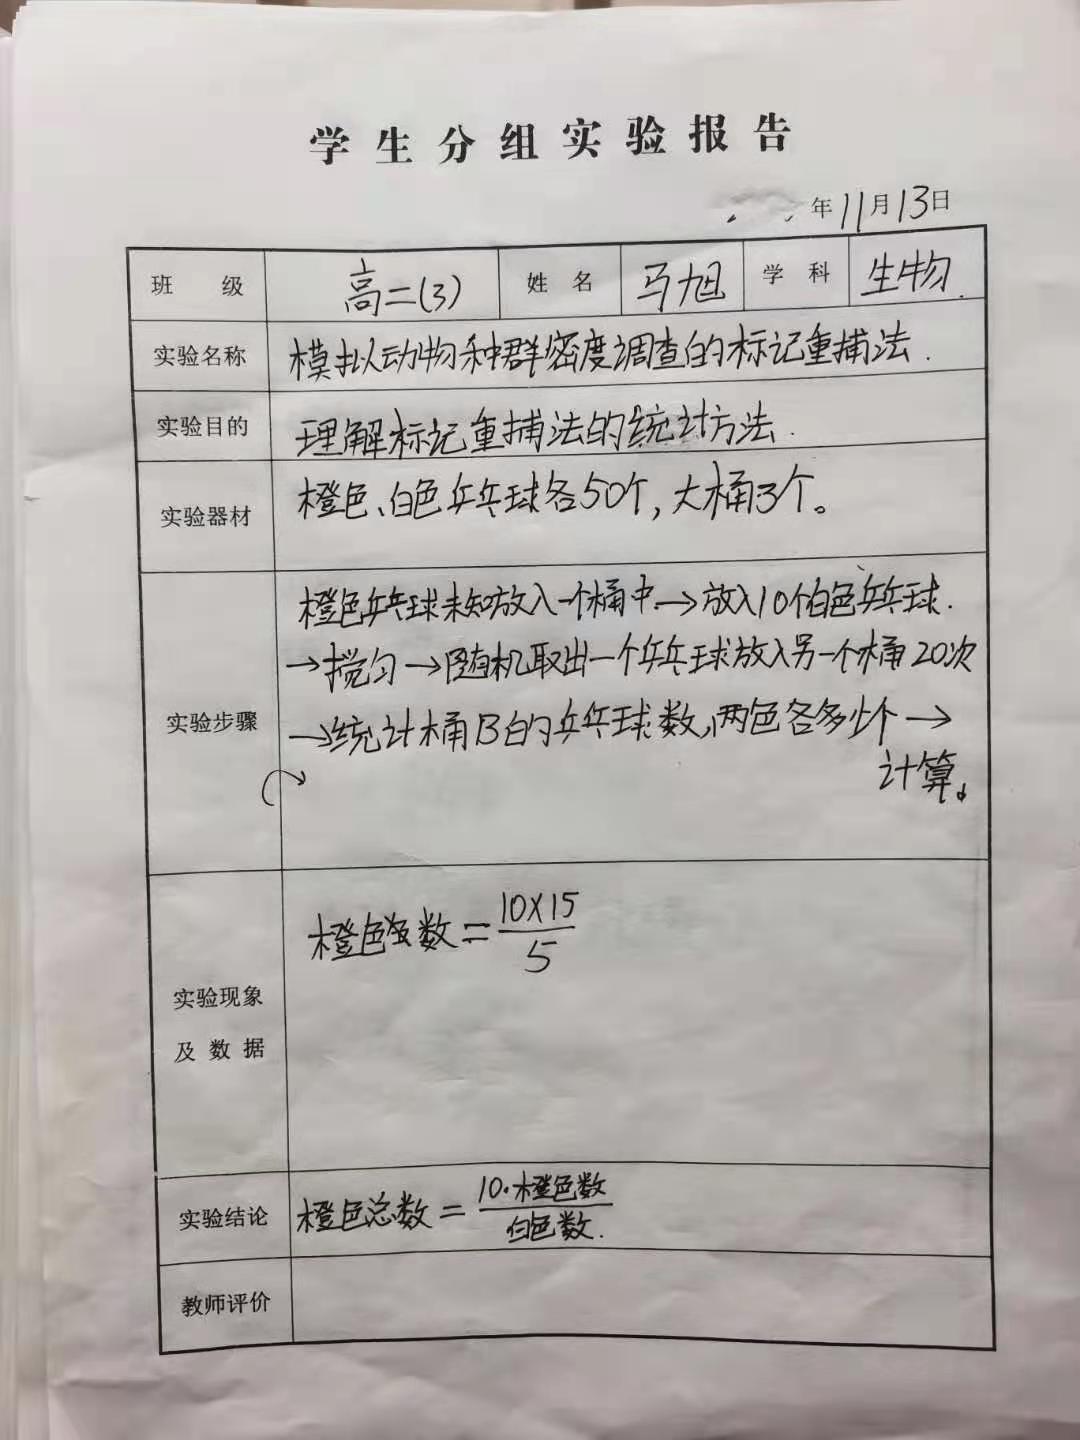 学生分组实验报告
年11月13日
班 级 高二(3) 姓 名 马旭 学 科 生物.
实验名称 模拟动物种群密度调查的标记重捕法.
实验目的 理解标记重捕法的统计方法.
实验器材 橙色、白色乒乓球各50个,大桶3个。
实验步骤
橙色乒乓球未知放入一个桶中→放入10个白色乒乓球.
→搅匀→随机取出一个乒乓球放入另一个桶20次
→统计桶B白的乒乓球数,两色各多少个→
计算。
实验现象
及 数 据
橙色总数=10×15
5
实验结论 橙色总数=10·橙色数
白色数.
教师评价